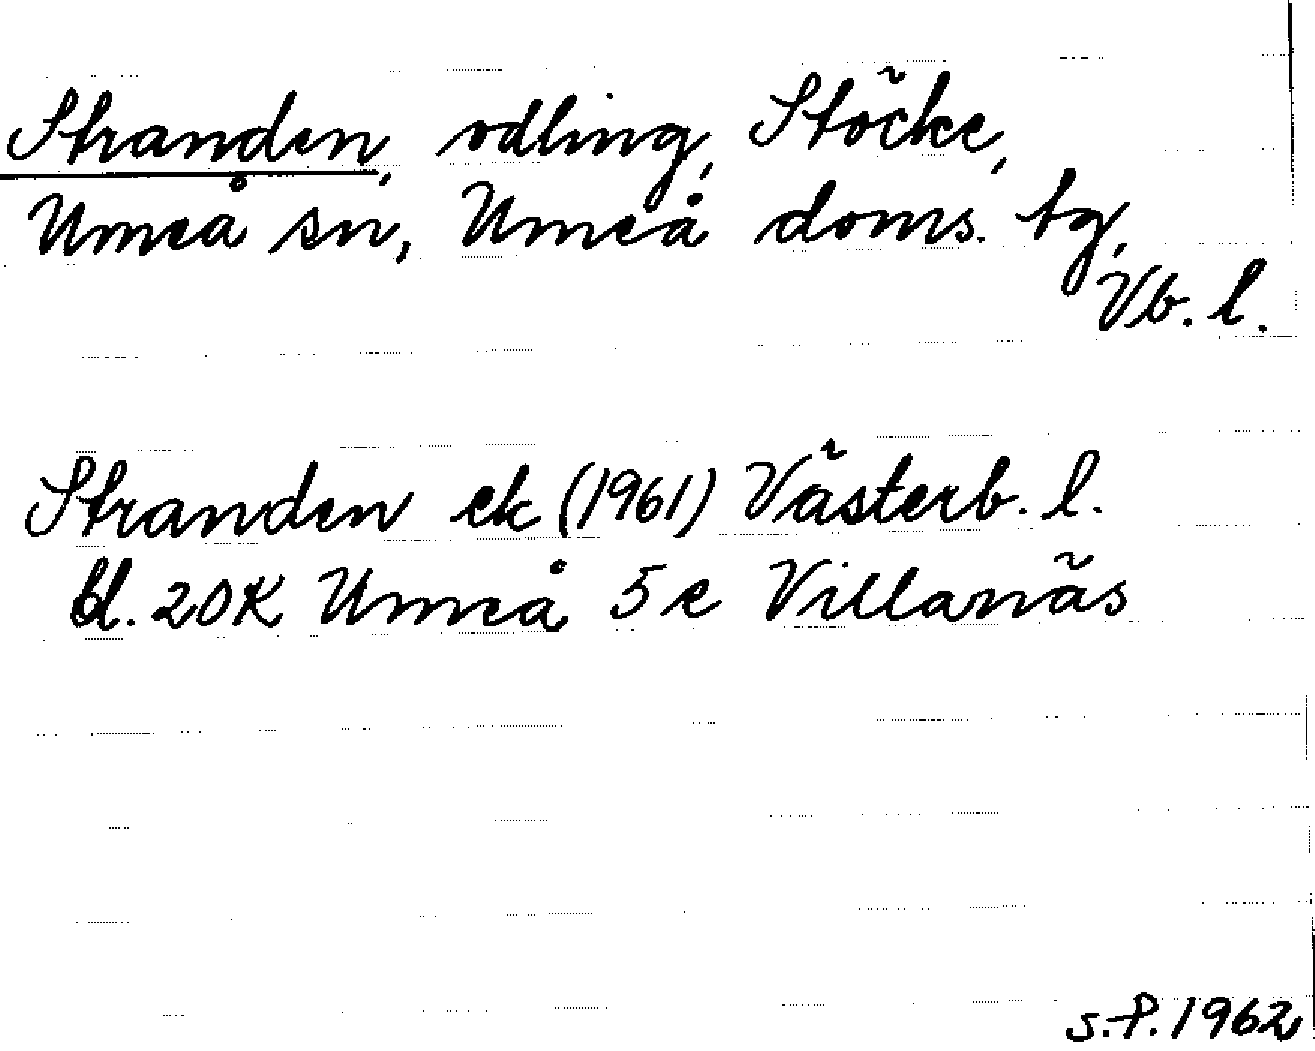 Stranden, odling, Stöcke,
Umeå sn, Umeå doms. tg,
Vb. l.
Stranden ek (1961) Västerb. l.
bl. 20K Umeå 5e Villanäs
S.P. 1962